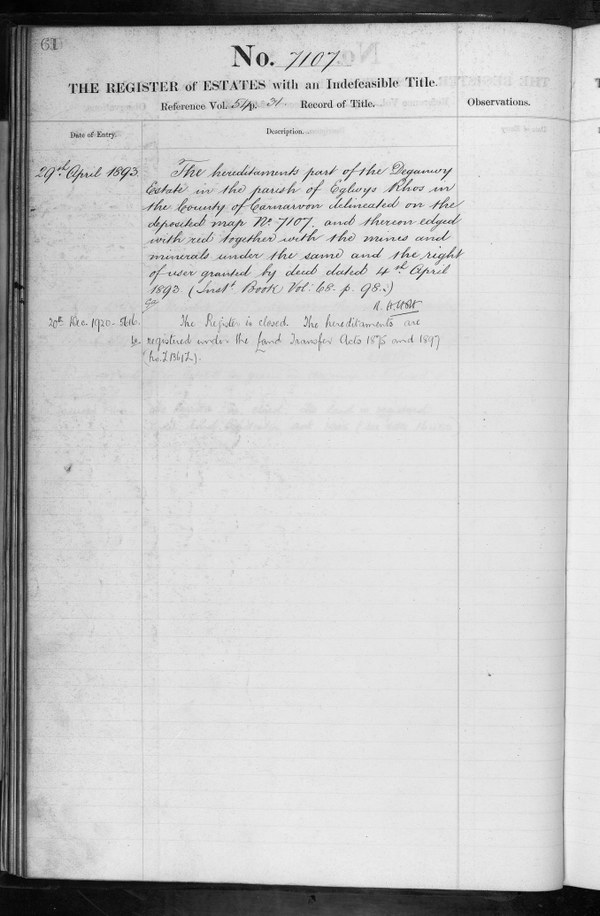 61
No. 7107
THE REGISTER of ESTATES with an Indefeasible Title.
Reference Vol. 51 p. 31 Record of Title.
Observations.
Date of Entry.
Description.
29th April 1893
The hereditaments part of the Deganwy
Estate in the parish of Eglwys Rhos in
the County of Carnarvon delineated on the
deposited map No. 7107. and thereon edged
with red together with the mines and
minerals under the same and the right
of user granted by deed dated 4th April
1893 (Inst. Book Vol: 68. p. 98.)
20th Dec. 1920
The Register is closed. The hereditaments are
registered under the Land Transfer Acts 1875 and 1897